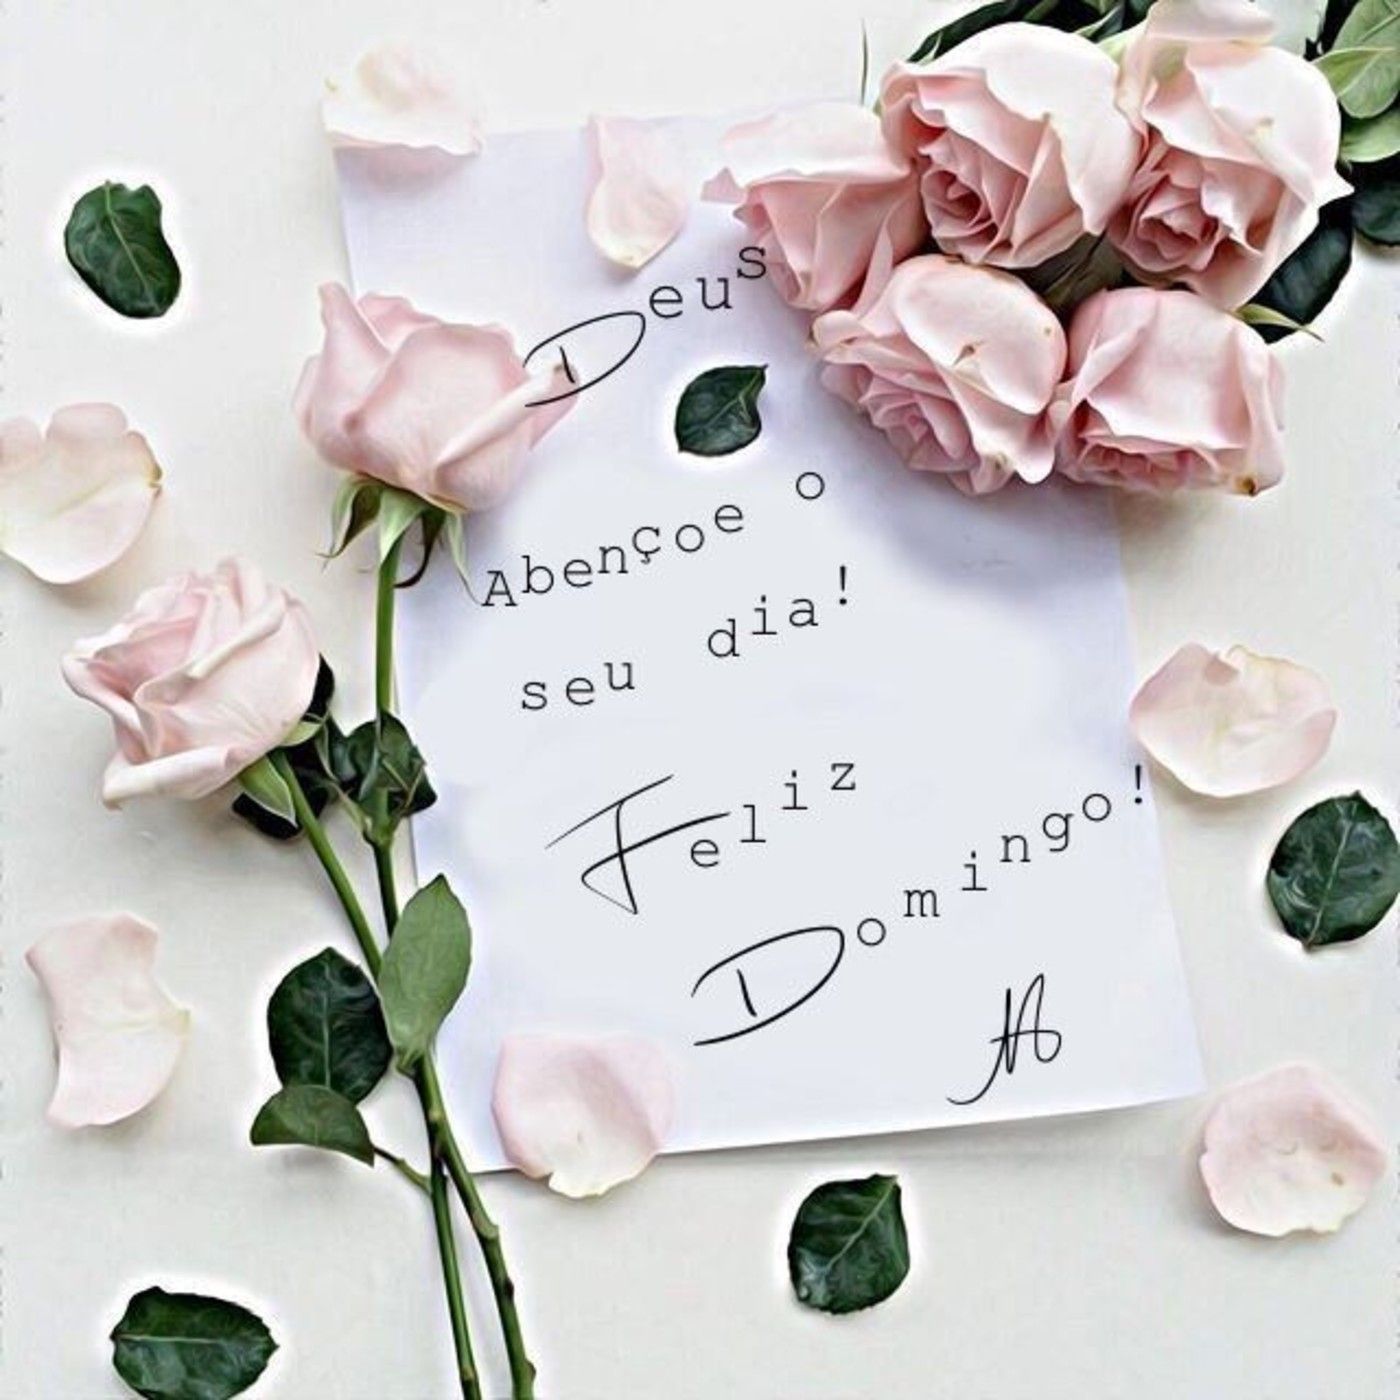 Deus
Abençoe o
seu dia!
Feliz
Domingo!